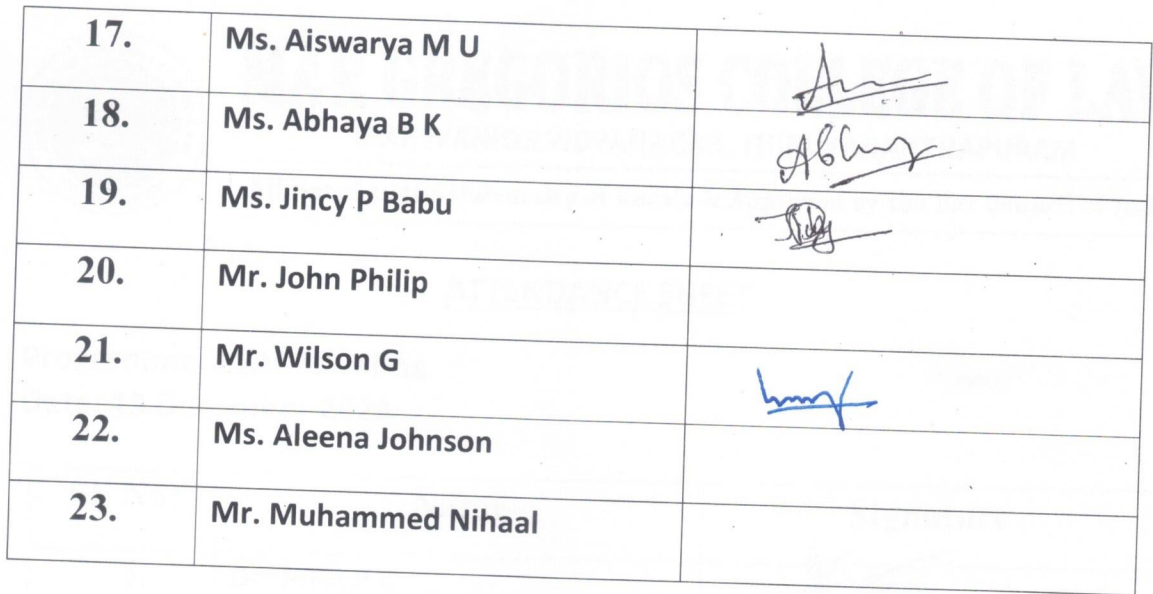 17. Ms. Aiswarya M U
18. Ms. Abhaya B K
19. Ms. Jincy P Babu
20. Mr. John Philip
21. Mr. Wilson G
22. Ms. Aleena Johnson
23. Mr. Muhammed Nihaal